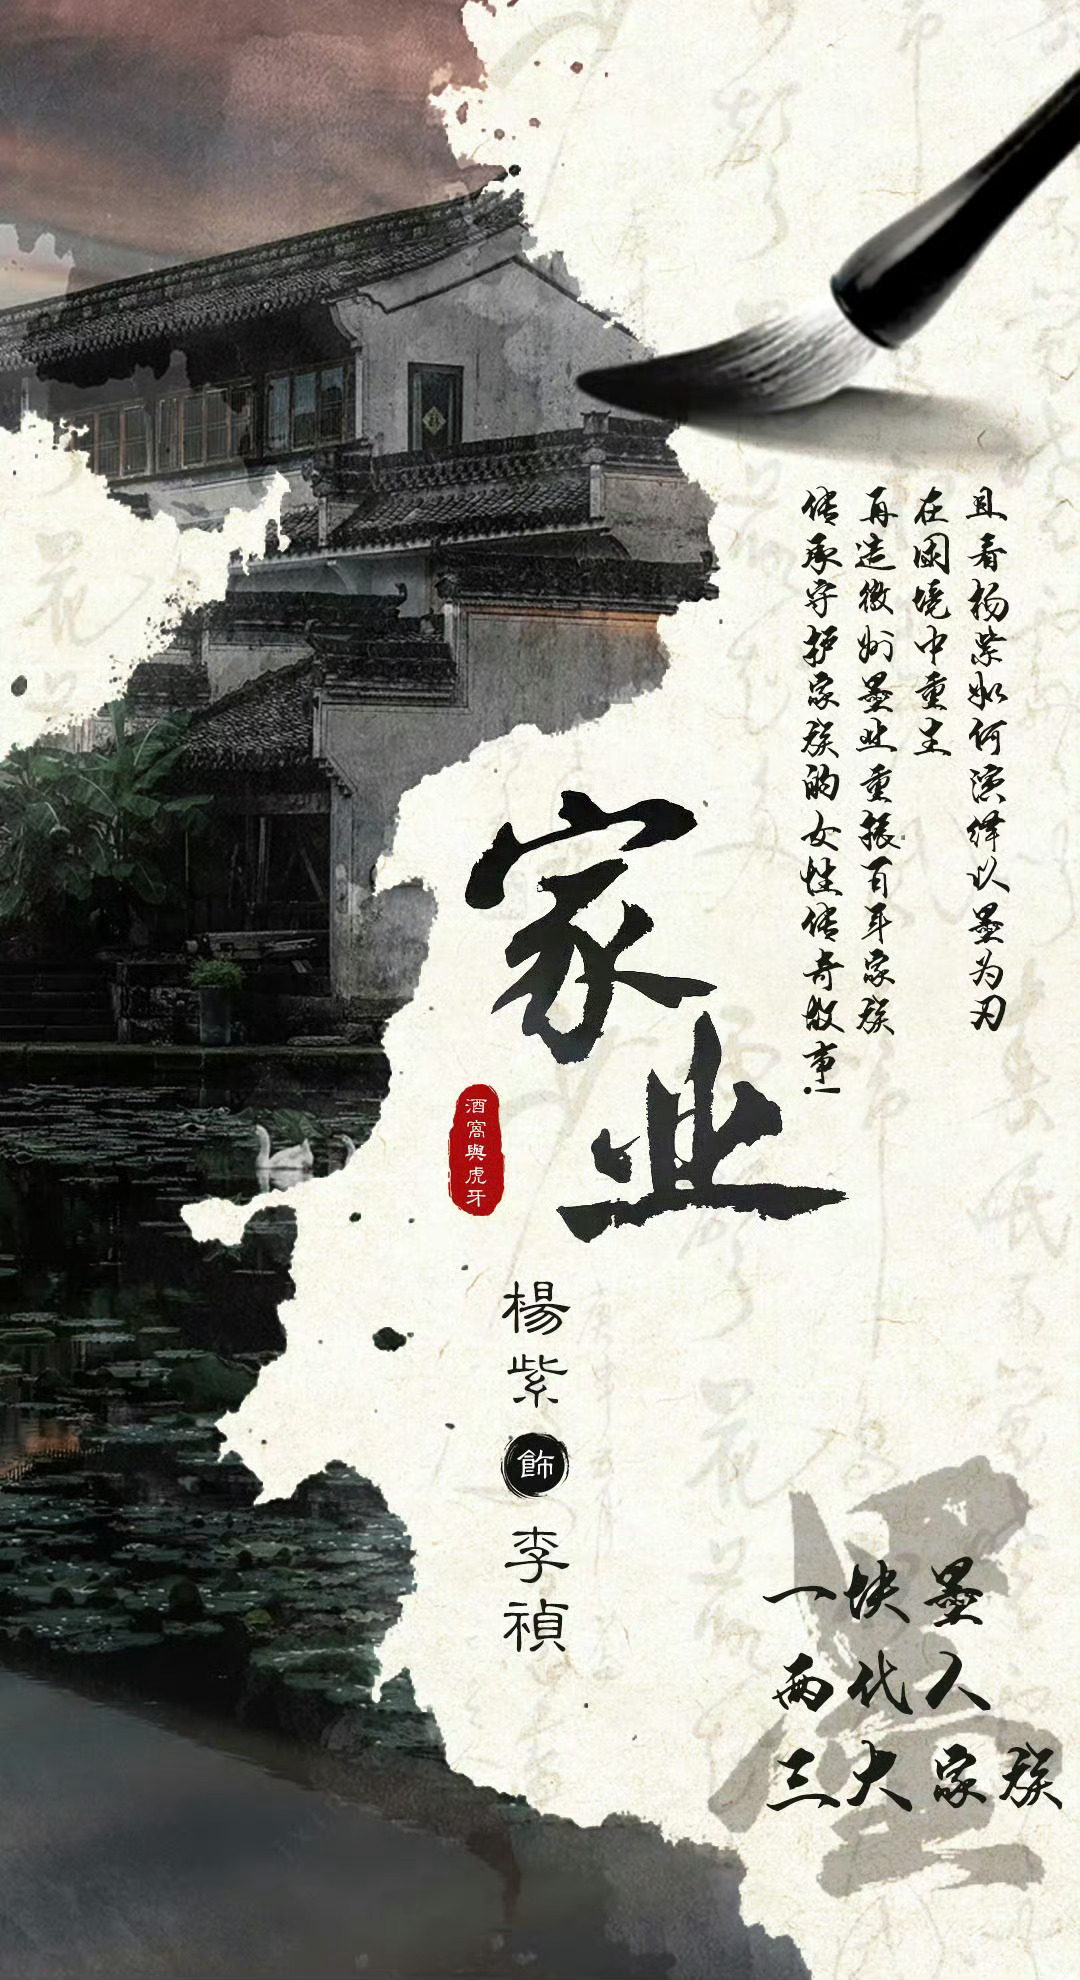 且看杨紫如何演绎以墨为刃
在困境中重生
再造徽州墨业重振百年家族
传承守护家族的女性传奇故事!
家业
酒窩與虎牙
楊紫
飾
李禎
墨
一块墨
两代人
三大家族